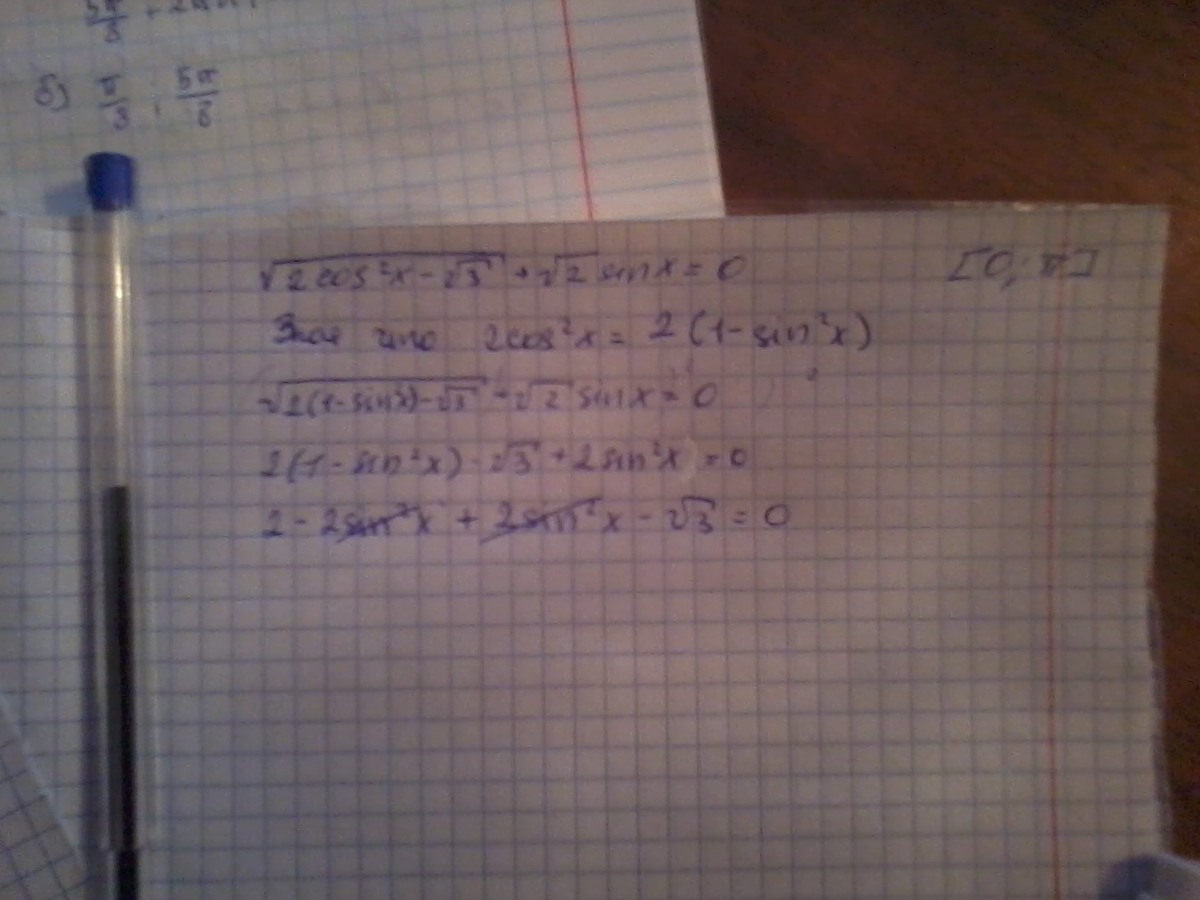 б) π/3, 5π/6
√(2cos²x - √3) + √2 sin x = 0 [0; π]
Зная что 2cos²x = 2(1 - sin²x)
√(2(1-sin²x)-√3) + √2 sin x = 0
2(1 - sin²x) - √3 + 2sin²x = 0
2 - 2sin²x + 2sin²x - √3 = 0